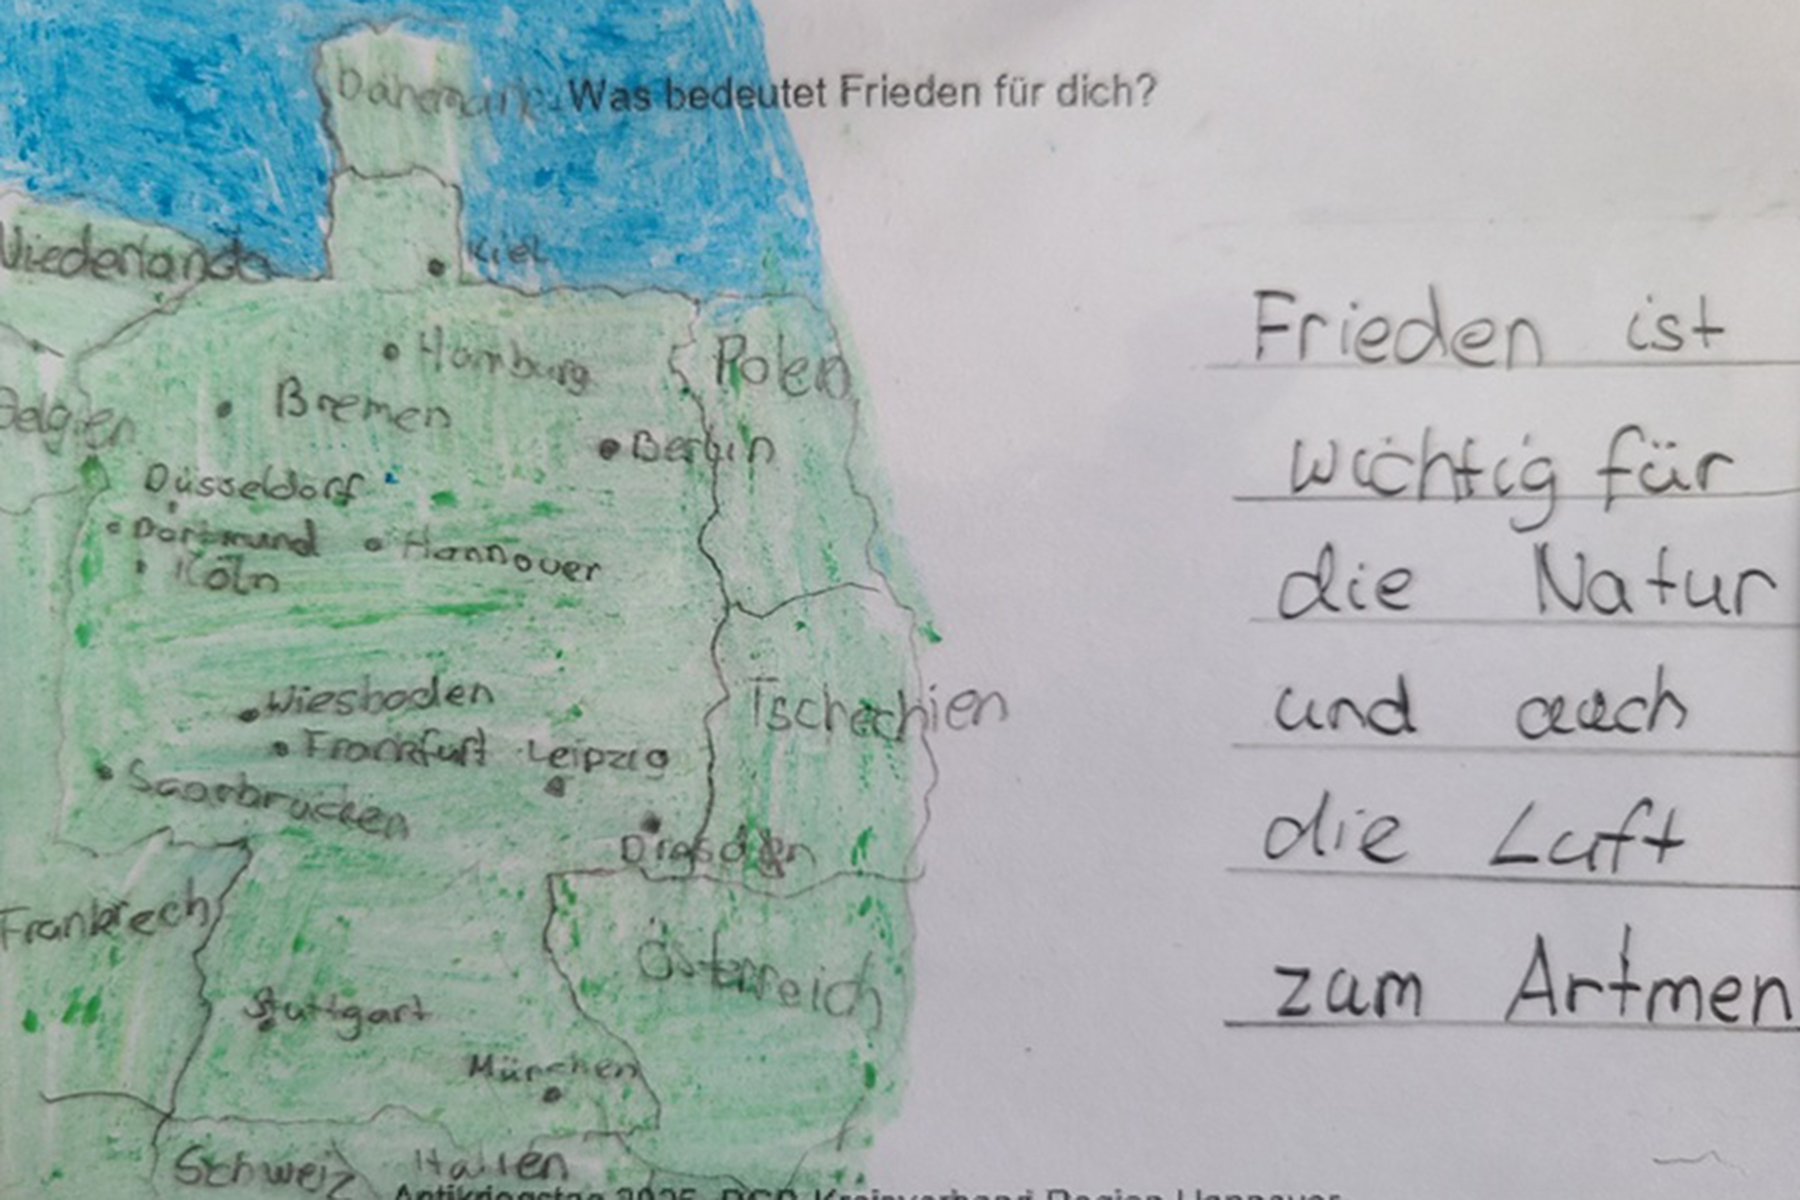 Dänemark
Was bedeutet Frieden für dich?
Niederlande
Kiel
Hamburg
Polen
Bremen
Belgien
Berlin
Düsseldorf
Dortmund
Hannover
Köln
Wiesbaden
Tschechien
Frankfurt
Leipzig
Saarbrücken
Dresden
Frankrech
Österreich
Stuttgart
München
Schweiz
Italien
Frieden ist
wichtig für
die Natur
und auch
die Luft
zum Artmen
Antikriegstag 2025, DGB Kreisverband Region Hannover